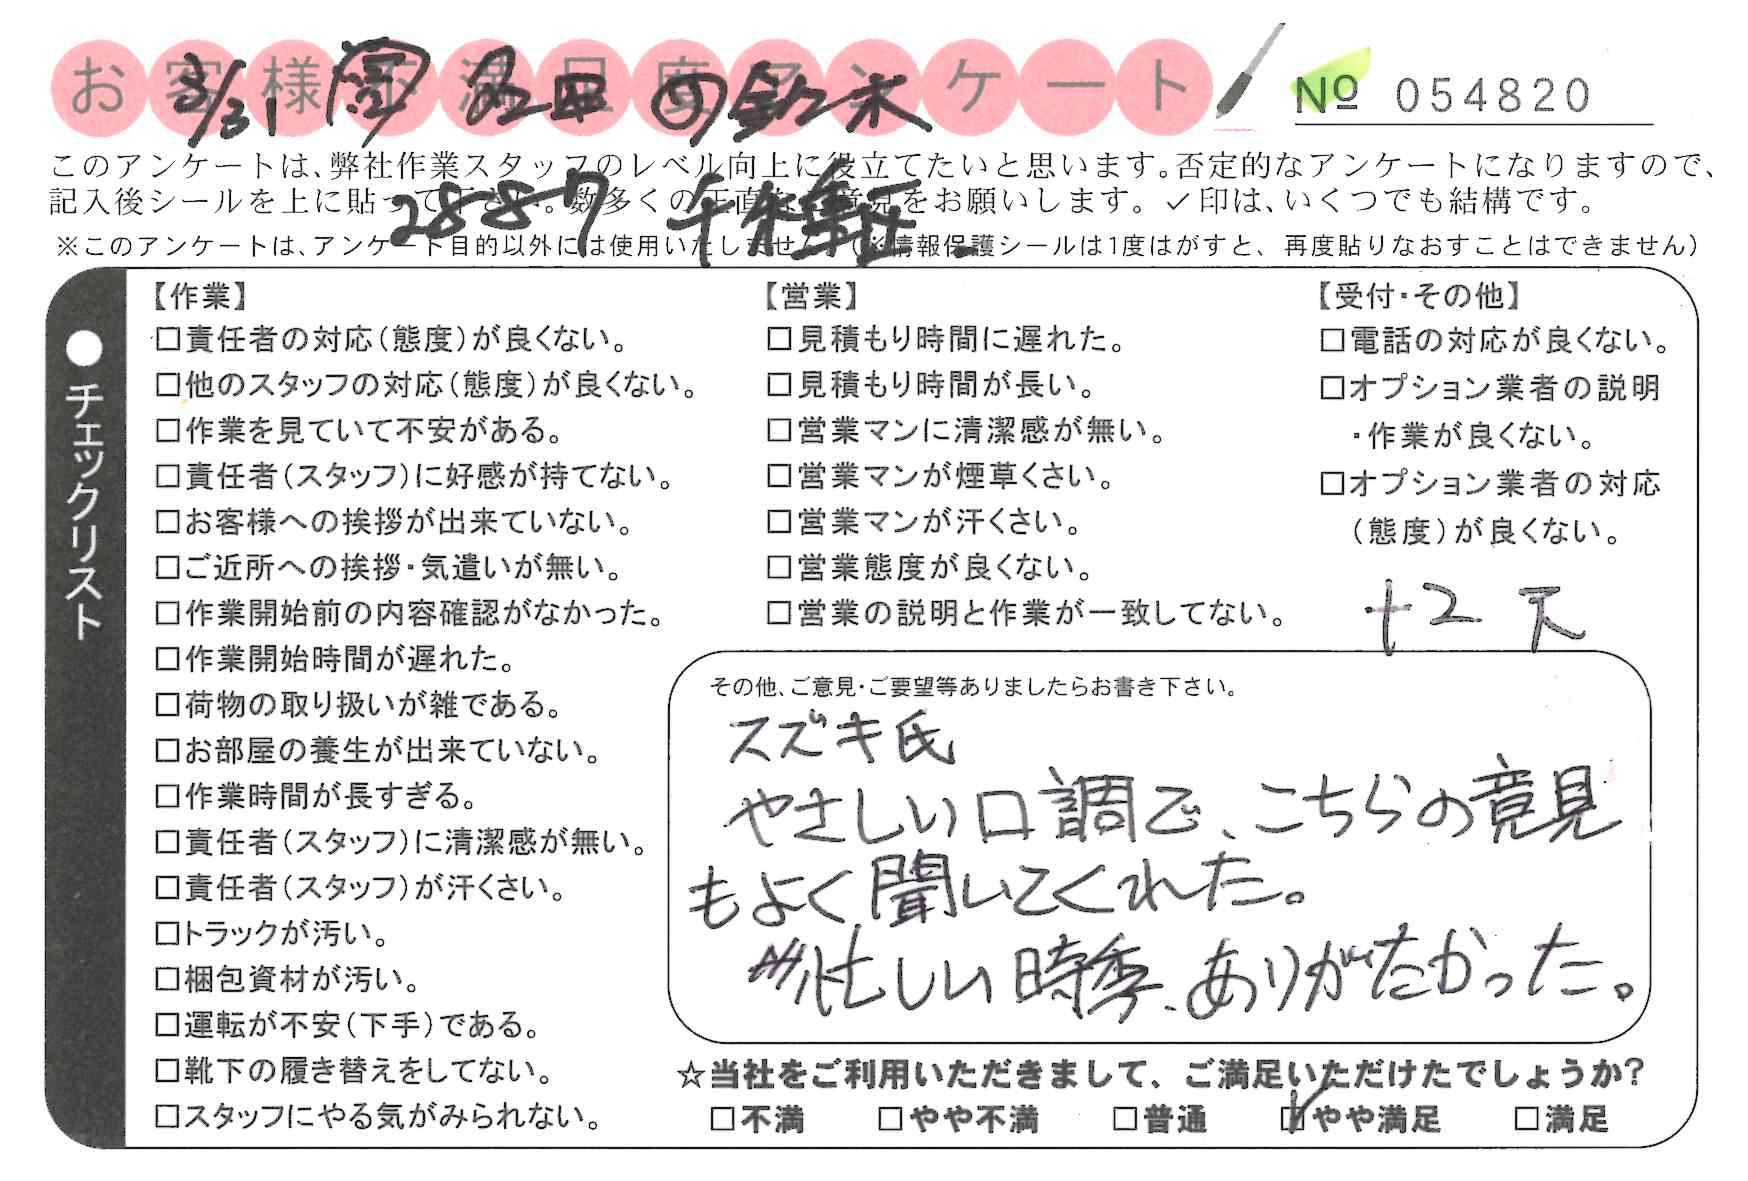 お客様不満足度アンケート
3/31
鈴木
No 054820
このアンケートは、弊社作業スタッフのレベル向上に役立てたいと思います。否定的なアンケートになりますので、
記入後シールを上に貼って下さい。数多くの正直な意見をお願いします。✓印は、いくつでも結構です。
28887
※このアンケートは、アンケート目的以外には使用いたしません。(※情報保護シールは1度はがすと、再度貼りなおすことはできません)
●チェックリスト
【作業】
□責任者の対応(態度)が良くない。
□他のスタッフの対応(態度)が良くない。
□作業を見ていて不安がある。
□責任者(スタッフ)に好感が持てない。
□お客様への挨拶が出来ていない。
□ご近所への挨拶・気遣いが無い。
□作業開始前の内容確認がなかった。
□作業開始時間が遅れた。
□荷物の取り扱いが雑である。
□お部屋の養生が出来ていない。
□作業時間が長すぎる。
□責任者(スタッフ)に清潔感が無い。
□責任者(スタッフ)が汗くさい。
□トラックが汚い。
□梱包資材が汚い。
□運転が不安(下手)である。
□靴下の履き替えをしてない。
□スタッフにやる気がみられない。
【営業】
□見積もり時間に遅れた。
□見積もり時間が長い。
□営業マンに清潔感が無い。
□営業マンが煙草くさい。
□営業マンが汗くさい。
□営業態度が良くない。
□営業の説明と作業が一致してない。
【受付・その他】
□電話の対応が良くない。
□オプション業者の説明
・作業が良くない。
□オプション業者の対応
(態度)が良くない。
+2
その他、ご意見・ご要望等ありましたらお書き下さい。
スズキ氏
やさしい口調で、こちらの意見
もよく聞いてくれた。
忙しい時季、ありがたかった。
☆当社をご利用いただきまして、ご満足いただけたでしょうか?
□不満 □やや不満 □普通 ☑やや満足 □満足